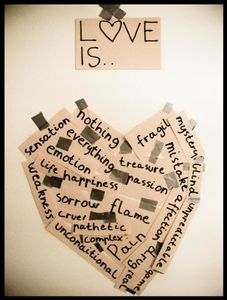 LOVE
IS..
nothing
sensation
everything
emotion
treasure
life happiness
passion
weakness
sorrow
flame
cruel
pathetic
complex
unconditional
pain
fragil
mystery
mistake
blind
affection
unpredictable
drug
real
game